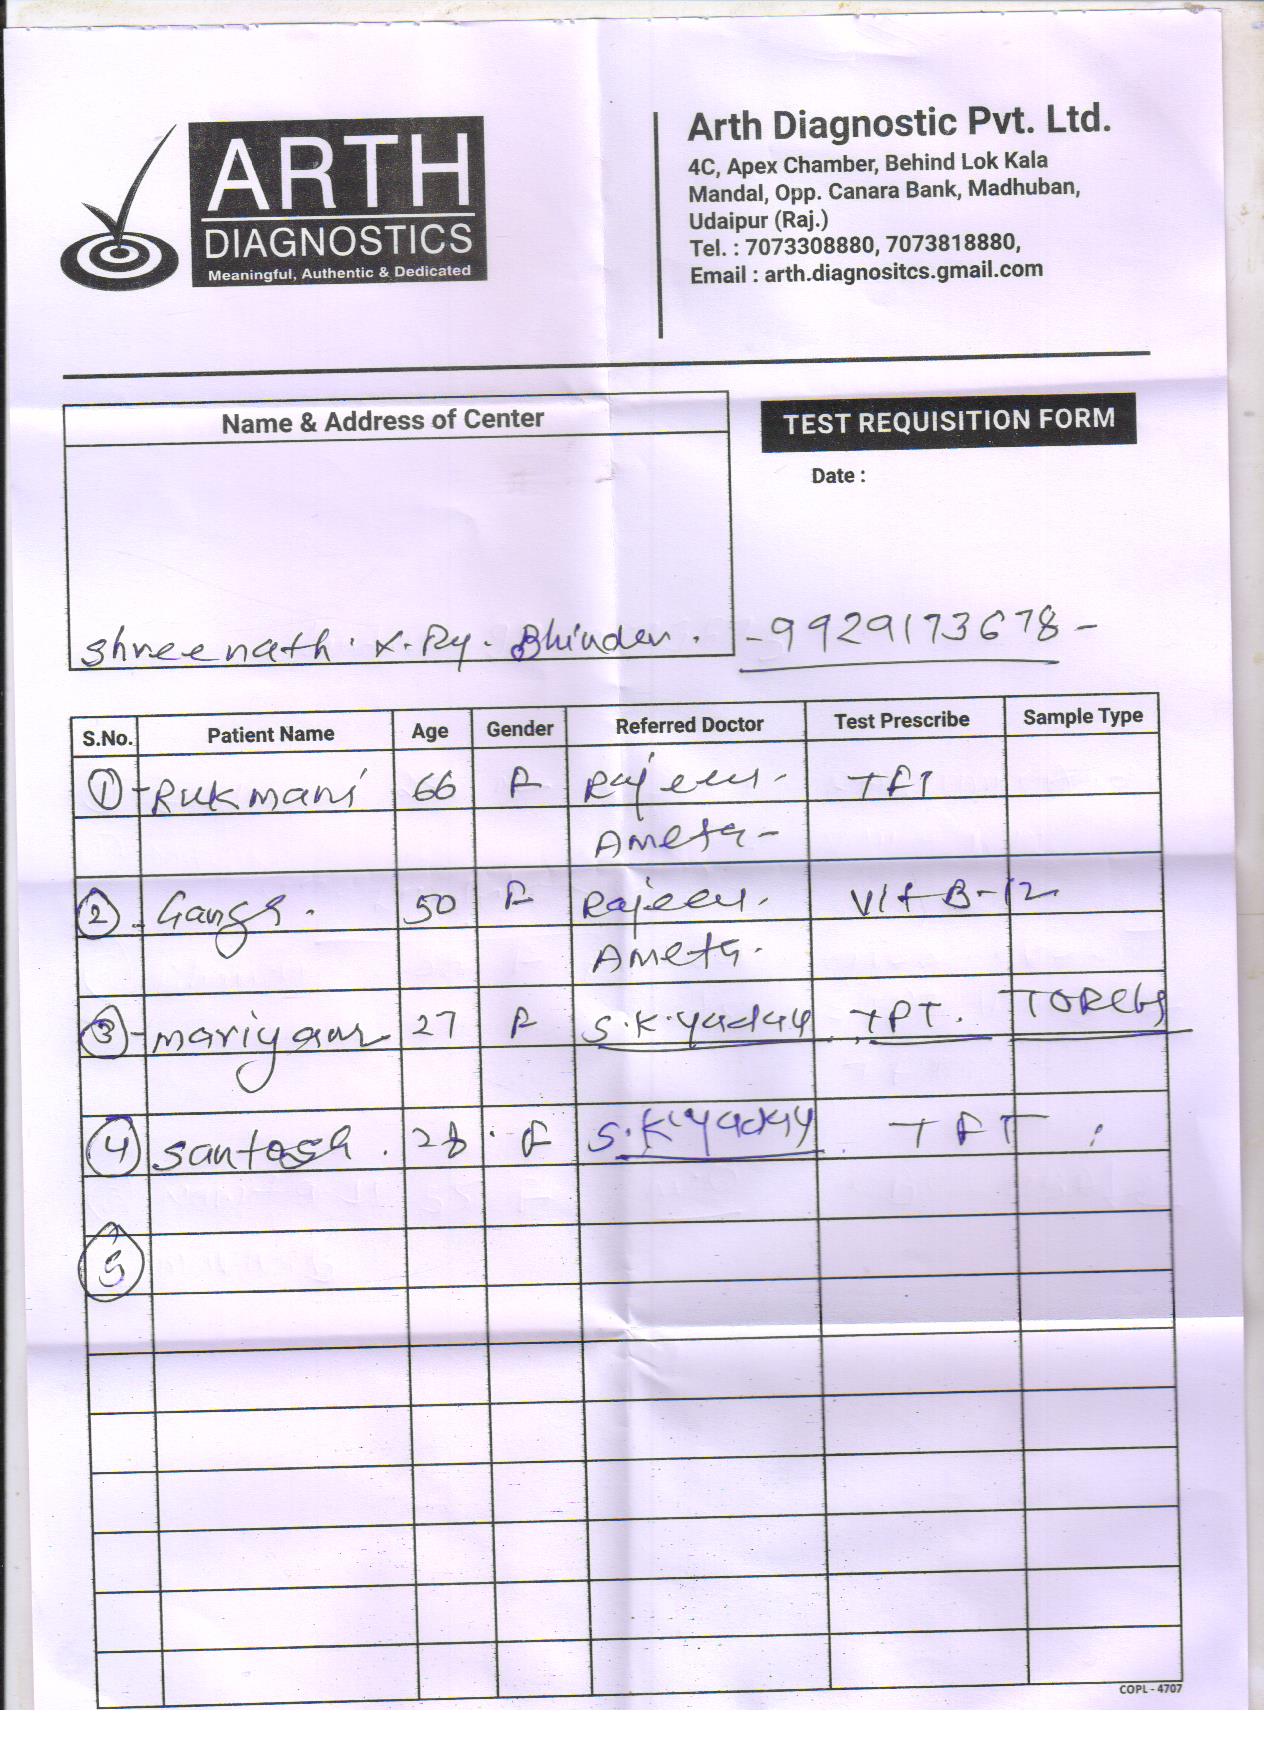 ARTH
DIAGNOSTICS
Meaningful, Authentic & Dedicated
Arth Diagnostic Pvt. Ltd.
4C, Apex Chamber, Behind Lok Kala
Mandal, Opp. Canara Bank, Madhuban,
Udaipur (Raj.)
Tel. : 7073308880, 7073818880,
Email : arth.diagnositcs.gmail.com
Name & Address of Center
TEST REQUISITION FORM
Date :
Shreenath. X. Ry. Bhinder. - 9929173678 -
S.No. Patient Name Age Gender Referred Doctor Test Prescribe Sample Type
1 - Rukmani 66 F Rajeev - TFT
Ameta -
2 - Ganga . 50 F Rajeev . Vit B-12
Ameta .
3 - mariyam 27 F S.K.Yadav TFT.
4 Santosh . 28 . F S.K.Yadav . TFT
5
COPL - 4707